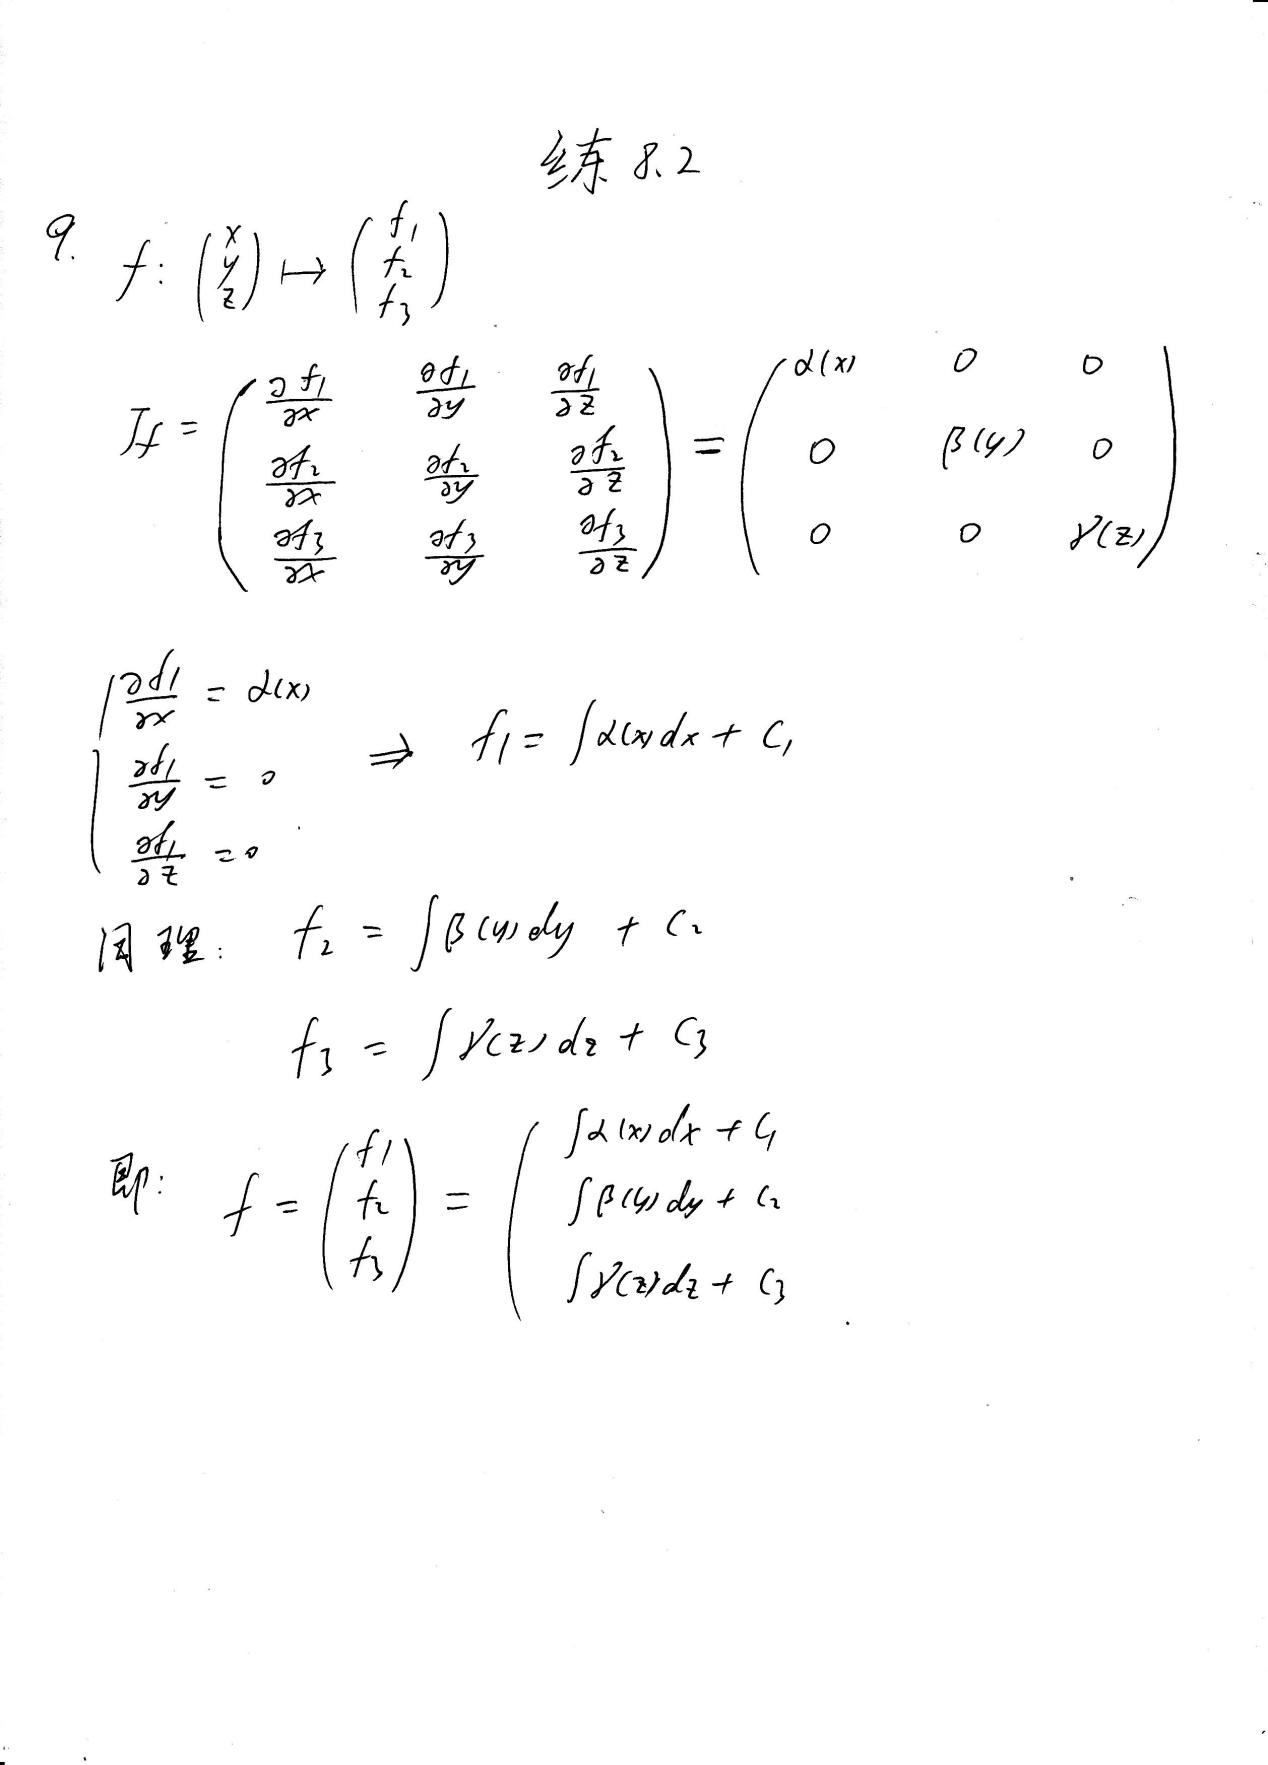 练 8.2
9. f: (x y z) ↦ (f₁ f₂ f₃)
Jf = (∂f₁/∂x ∂f₁/∂y ∂f₁/∂z ∂f₂/∂x ∂f₂/∂y ∂f₂/∂z ∂f₃/∂x ∂f₃/∂y ∂f₃/∂z) = (α(x) 0 0 0 β(y) 0 0 0 γ(z))
∂f₁/∂x = α(x)
∂f₁/∂y = 0 ⇒ f₁ = ∫α(x)dx + C₁
∂f₁/∂z = 0
同理: f₂ = ∫β(y)dy + C₂
f₃ = ∫γ(z)dz + C₃
即: f = (f₁ f₂ f₃) = (∫α(x)dx + C₁
∫β(y)dy + C₂
∫γ(z)dz + C₃